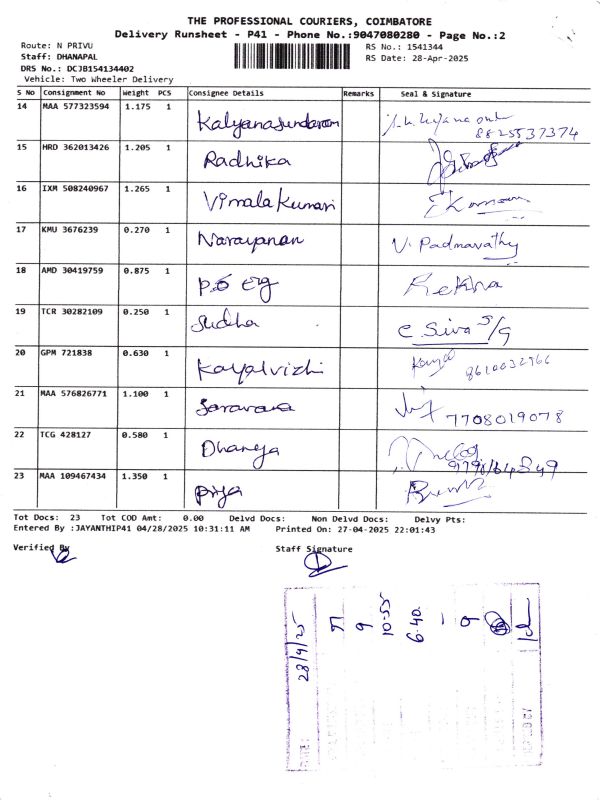 THE PROFESSIONAL COURIERS, COIMBATORE
Delivery Runsheet - P41 - Phone No.:9047080280 - Page No.:2
Route: N PRIVU
RS No.: 1541344
Staff: DHANAPAL
RS Date: 28-Apr-2025
DRS No.: DCJB154134402
Vehicle: Two Wheeler Delivery
S No Consignment No Weight PCS Consignee Details Remarks Seal & Signature
14 MAA 577323594 1.175 1 Kalyanasundaram 8825537374
15 HRD 362013426 1.205 1 Radhika
16 IXM 508240967 1.265 1 Vimala Kumari
17 KMU 3676239 0.270 1 Narayanan V. Padmavathy
18 AMD 30419759 0.875 1 Rekha
19 TCR 30282109 0.250 1 Sudha C. Siva S/9
20 GPM 721838 0.630 1 Kayalvizhi 8610032966
21 MAA 576826771 1.100 1 Saravana 7708019078
22 TCG 428127 0.580 1
23 MAA 109467434 1.350 1 Priya
Tot Docs: 23 Tot COD Amt: 0.00 Delvd Docs: Non Delvd Docs: Delvy Pts:
Entered By :JAYANTHIP41 04/28/2025 10:31:11 AM Printed On: 27-04-2025 22:01:43
Verified By Staff Signature
28/4/25
9
10.55
6.40
-
9